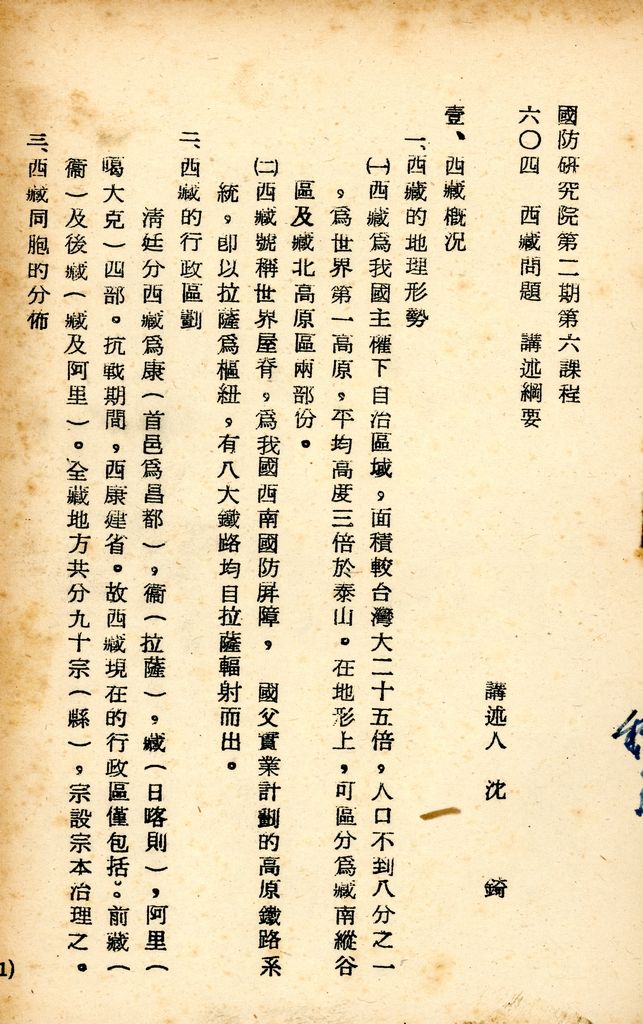 國防研究院第二期第六課程
六〇四　西藏問題　講述綱要
講述人　沈　錡
壹、西藏概況
一、西藏的地理形勢
㈠西藏爲我國主權下自治區域，面積較台灣大二十五倍，人口不到八分之一
，爲世界第一高原，平均高度三倍於泰山。在地形上，可區分爲藏南縱谷
區及藏北高原區兩部份。
㈡西藏號稱世界屋脊，爲我國西南國防屏障，　國父實業計劃的高原鐵路系
統，卽以拉薩爲樞紐，有八大鐵路均自拉薩輻射而出。
二、西藏的行政區劃
淸廷分西藏爲康（首邑爲昌都），衞（拉薩），藏（日喀則），阿里（
噶大克）四部。抗戰期間，西康建省。故西藏現在的行政區僅包括。前藏（
衞）及後藏（藏及阿里）。全藏地方共分九十宗（縣），宗設宗本治理之。
三、西藏同胞的分佈
1)